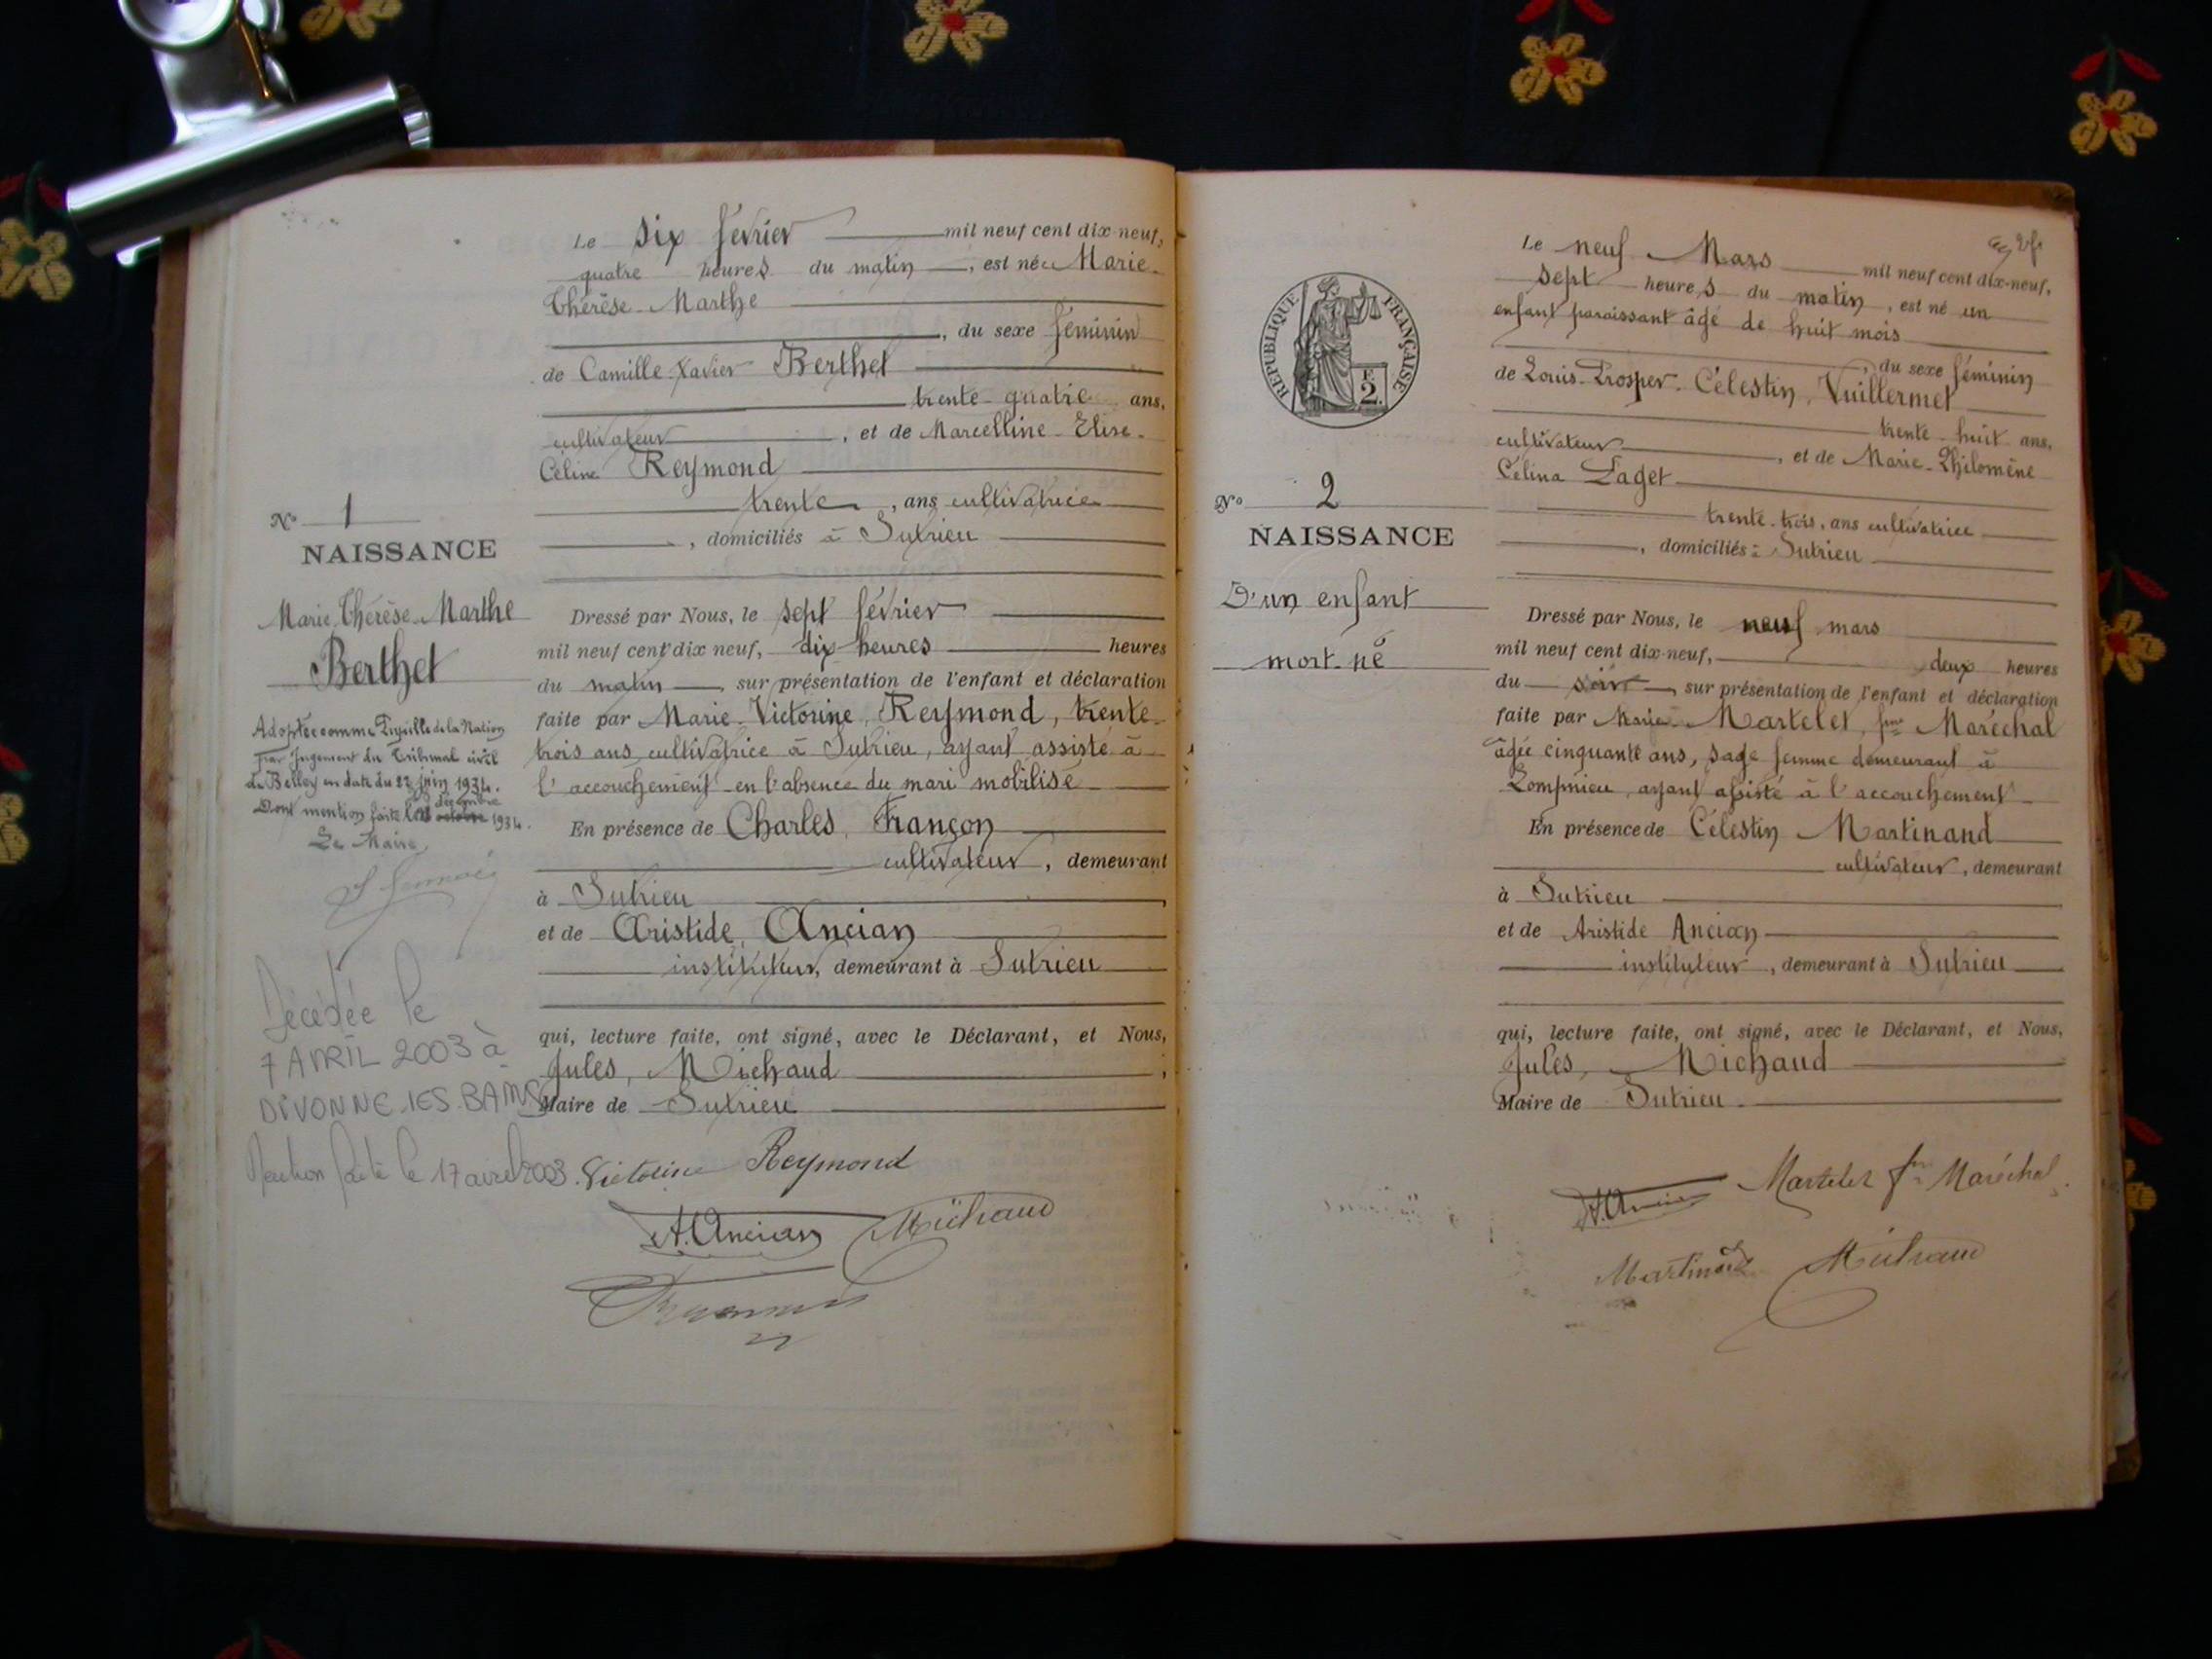 Le six février mil neuf cent dix-neuf,
quatre heures du matin, est née Marie-
Thérèse-Marthe
, du sexe féminin
de Camille-Xavier Berthet
trente-quatre ans,
cultivateur, et de Marcelline-Elise-
Céline Reymond
trente, ans cultivatrice
, domiciliés à Sutrieu
No 1
NAISSANCE
Marie-Thérèse-Marthe
Berthet
Adoptée comme Pupille de la Nation
par Jugement du Tribunal civil
de Belley en date du 22 juin 1934.
décembre
Dont mention faite le octobre 1934.
Le Maire,
Décédée le
7 AVRIL 2003 à
DIVONNE-LES-BAINS
Mention faite le 17 avril 2003.
Dressé par Nous, le sept février
mil neuf cent dix neuf, dix heures heures
du matin, sur présentation de l'enfant et déclaration
faite par Marie-Victorine Reymond, trente-
trois ans, cultivatrice à Sutrieu, ayant assisté à
l'accouchement en l'absence du mari mobilisé
En présence de Charles, Françon
cultivateur, demeurant
à Sutrieu
et de Aristide, Ancian
instituteur, demeurant à Sutrieu
qui, lecture faite, ont signé, avec le Déclarant, et Nous,
Jules, Michaud,
Maire de Sutrieu
Victorine Reymond
A. Ancian Michaud
RÉPUBLIQUE FRANÇAISE
F.
2.
No 2
NAISSANCE
D'un enfant
mort-né
Le neuf Mars mil neuf cent dix-neuf,
sept heures du matin, est né un
enfant paraissant âgé de huit mois
, du sexe féminin
de Louis-Prosper-Célestin, Vuillermet
trente-huit ans,
cultivateur, et de Marie-Philomène
Célina Paget
trente-trois, ans cultivatrice
, domiciliés à Sutrieu
Dressé par Nous, le neuf mars
mil neuf cent dix-neuf, deux heures
du soir, sur présentation de l'enfant et déclaration
faite par Marie Martelet, fme Maréchal
âgée cinquante ans, sage femme demeurant à
Lompnieu, ayant assisté à l'accouchement
En présence de Célestin Martinand
cultivateur, demeurant
à Sutrieu
et de Aristide Ancian
instituteur, demeurant à Sutrieu
qui, lecture faite, ont signé, avec le Déclarant, et Nous,
Jules, Michaud
Maire de Sutrieu
A. Ancian Martelet fme Maréchal
Martinand Michaud